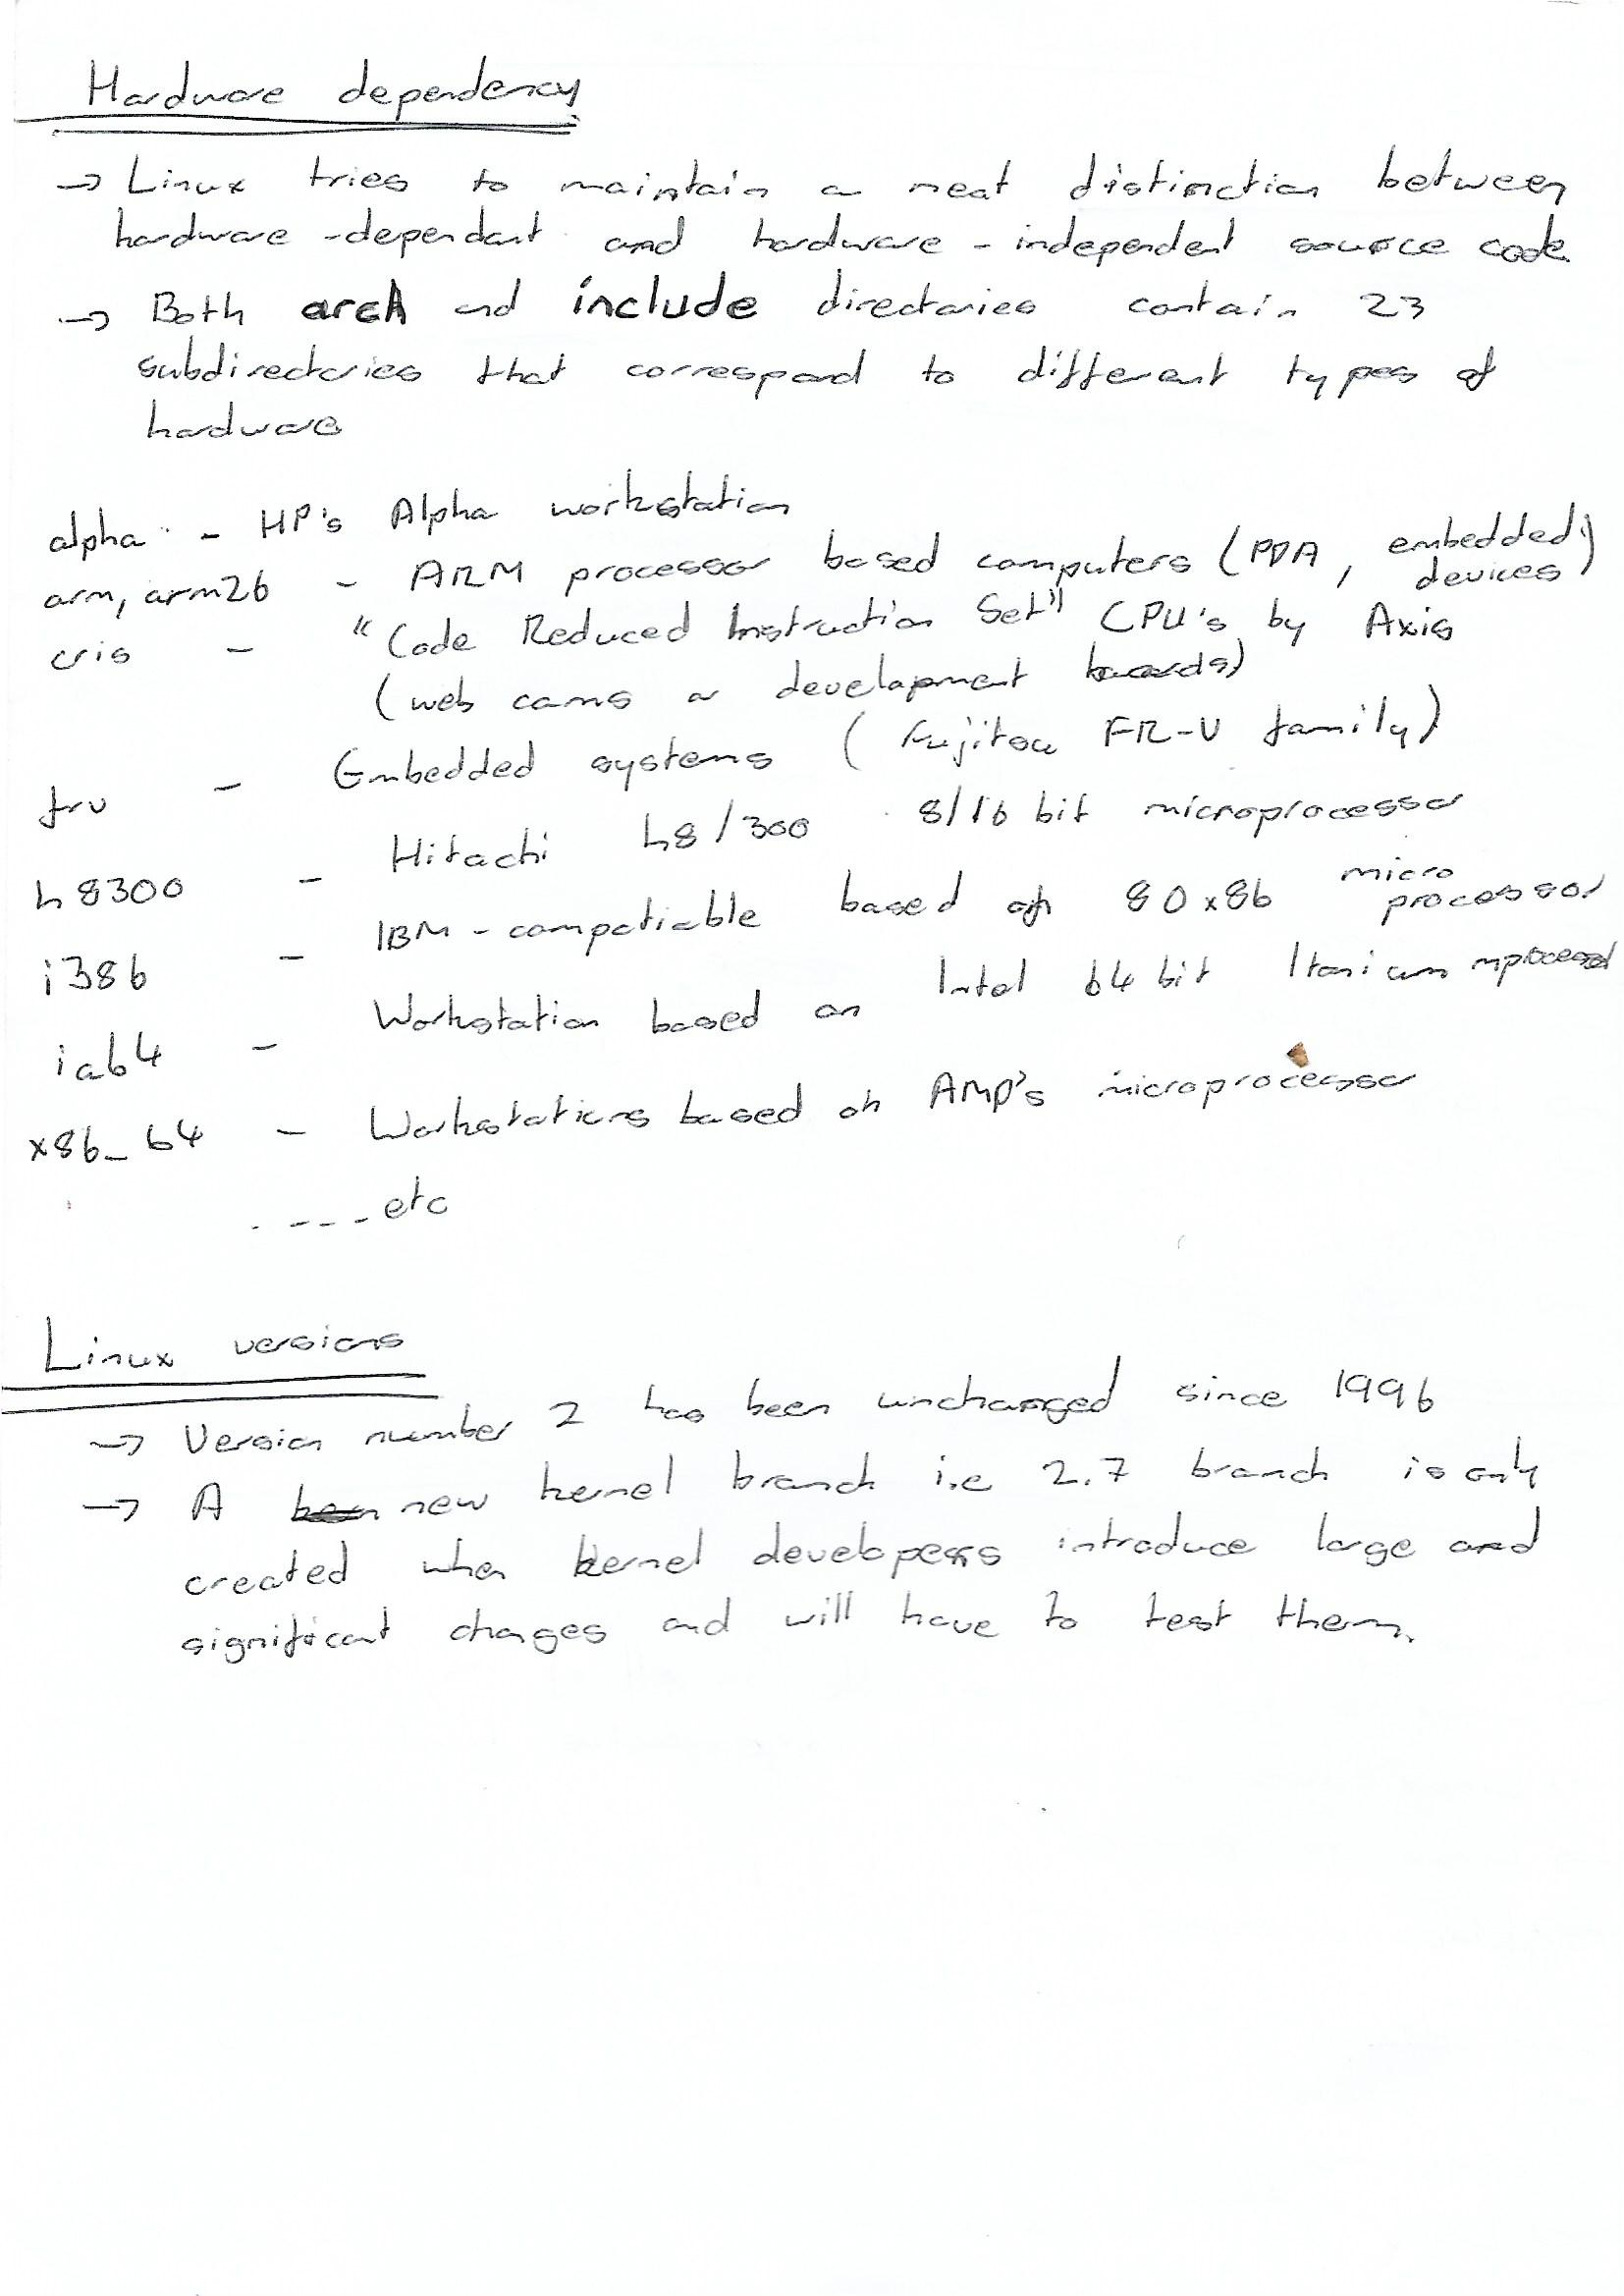 Hardware dependency
→ Linux tries to maintain a neat distinction between
hardware-dependant and hardware-independent source code
→ Both arch and include directories contain 23
subdirectories that correspond to different types of
hardware
alpha - HP's Alpha workstation
arm, arm26 - ARM processor based computers (PDA, embedded devices)
cris - "Code Reduced Instruction Set" CPU's by Axis
(web cams or development boards)
frv - Embedded systems (Fujitsu FR-V family)
h8300 - Hitachi h8/300 8/16 bit microprocessor
i386 - IBM-compatiable based on 80x86 micro processor
ia64 - Workstation based on Intel 64 bit Itanium mprocessor
x86_64 - Workstations based on AMD's microprocessor
.---- etc
Linux versions
→ Version number 2 has been unchanged since 1996
→ A new kernel branch i.e 2.7 branch is only
created when kernel developers introduce large and
significant changes and will have to test them.